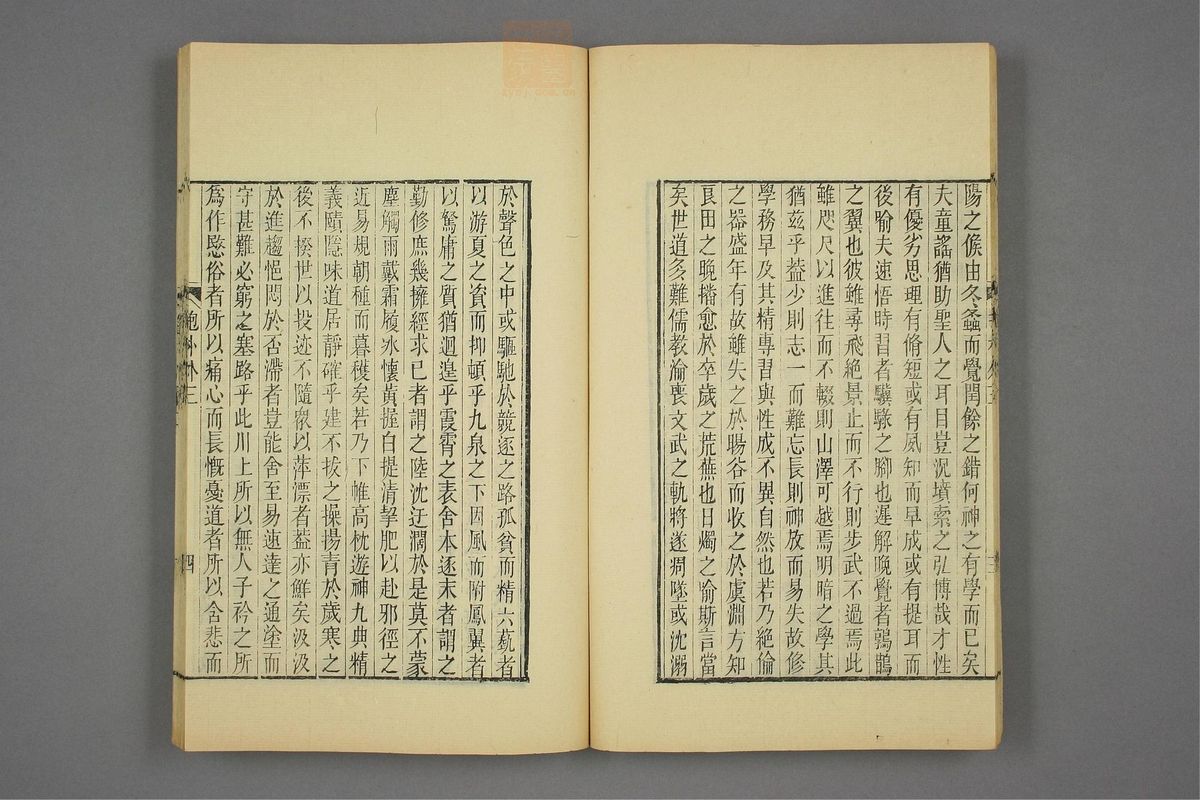 陽之候由冬螽而覺閏餘之錯何神之有學而已矣
夫童謡猶助聖人之耳目豈況墳索之弘博哉才性
有優劣思理有脩短或有夙知而早成或有提耳而
後喻夫速悟時習者驥騄之腳也遲解晚覺者鶉鵲
之翼也彼雖尋飛絶景止而不行則步武不過焉此
雖咫尺以進往而不輟則山澤可越焉明暗之學其
猶兹乎葢少則志一而難忘長則神放而易失故修
學務早及其精專習與性成不異自然也若乃絶倫
之器盛年有故雖失之於暘谷而收之於虞淵方知
良田之晚播愈於卒歲之荒蕪也日燭之喻斯言當
矣世道多難儒教淪喪文武之軌將遂凋墜或沈溺
於聲色之中或驅馳於競逐之路孤貧而精六蓺者
以游夏之資而抑頓乎九泉之下因風而附鳳翼者
以駑庸之質猶迴遑乎霞霄之表舍本逐末者謂之
勤修庶幾擁經求己者謂之陸沈迂濶於是莫不蒙
塵觸雨戴霜履氷懷黃握白提清挈肥以赴邪徑之
近易規朝種而暮穫矣若乃下帷高枕遊神九典精
義賾隱味道居靜確乎建不拔之操揚青於歲寒之
後不揆世以投迹不隨衆以萍漂者葢亦鮮矣汲汲
於進趨悒悶於否滯者豈能舍至易速達之通塗而
守甚難必窮之塞路乎此川上所以無人子衿之所
爲作愍俗者所以痛心而長慨憂道者所以含悲而
抱朴外三
四